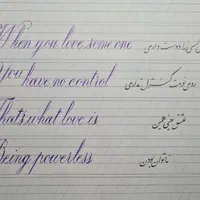 When you love some one کسی را دوست داری
You have no control روی خودت کنترل نداری
That's what love is عشق یعنی همین
Being powerless ناتوان بودن